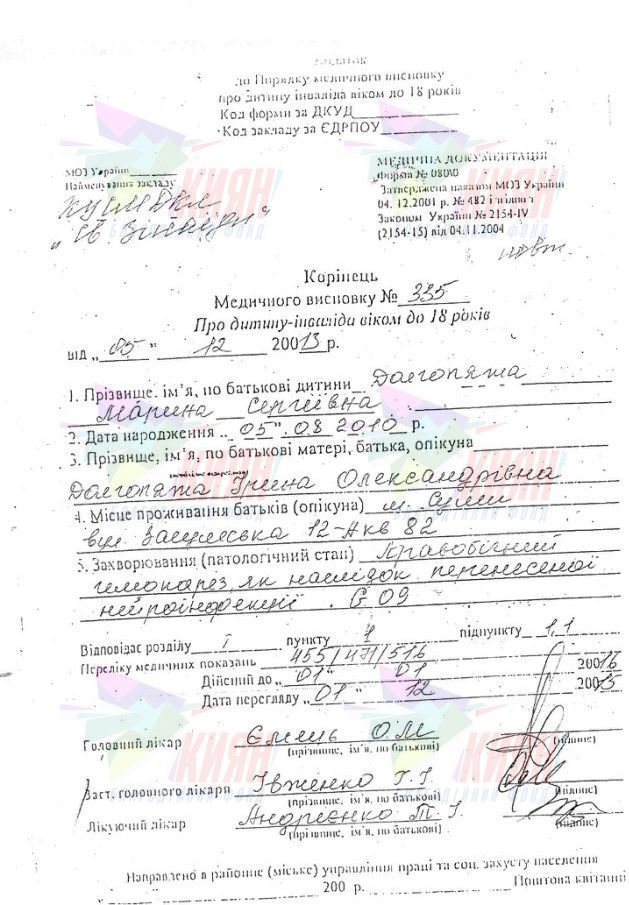 Додаток
до Порядку медичного висновку
про дитину інваліда віком до 18 років
Код форми за ДКУД
Код закладу за ЄДРПОУ
МОЗ України
Найменування закладу
КУ СМДКЛ
„Св. Зінаїди“
МЕДИЧНА ДОКУМЕНТАЦІЯ
форма № 080\0
Затверджена наказом МОЗ України
04. 12.2001 р. № 482 і згідно з
Законом України № 2154-IV
(2154-15) від 04.11.2004
Корінець
Медичного висновку № 335
Про дитину-інваліда віком до 18 років
від „05“ 12 20013 р.
1. Прізвище, ім’я, по батькові дитини Долгопята
Марина Сергіївна
2. Дата народження „05“ 08 2010 р.
3. Прізвище, ім’я, по батькові матері, батька, опікуна
Долгопята Ірина Олександрівна
4. Місце проживання батьків (опікуна) м. Суми
вул. 12-А кв 82
5. Захворювання (патологічний стан) Правобічний
геміпарез як наслідок перенесеної
нейроінфекції . G 09
Відповідає розділу I пункту 1 підпункту 1,1
Переліку медичних показань 455/471/516
Дійсний до „01“ 01 20016
Дата перегляду „01“ 12 20015
Головний лікар Ємець О.М
(прізвище, ім’я, по батькові) (підпис)
Заст. головного лікаря Івженко Г.Г.
(прізвище, ім’я, по батькові) (підпис)
Лікуючий лікар Андрієнко Т. І.
(прізвище, ім’я, по батькові) (підпис)
Направлено в районне (міське) управління праці та соц. захусту населення
200 р. Поштова квитанці
КИЯН
БЛАГОДІЙНИЙ ФОНД